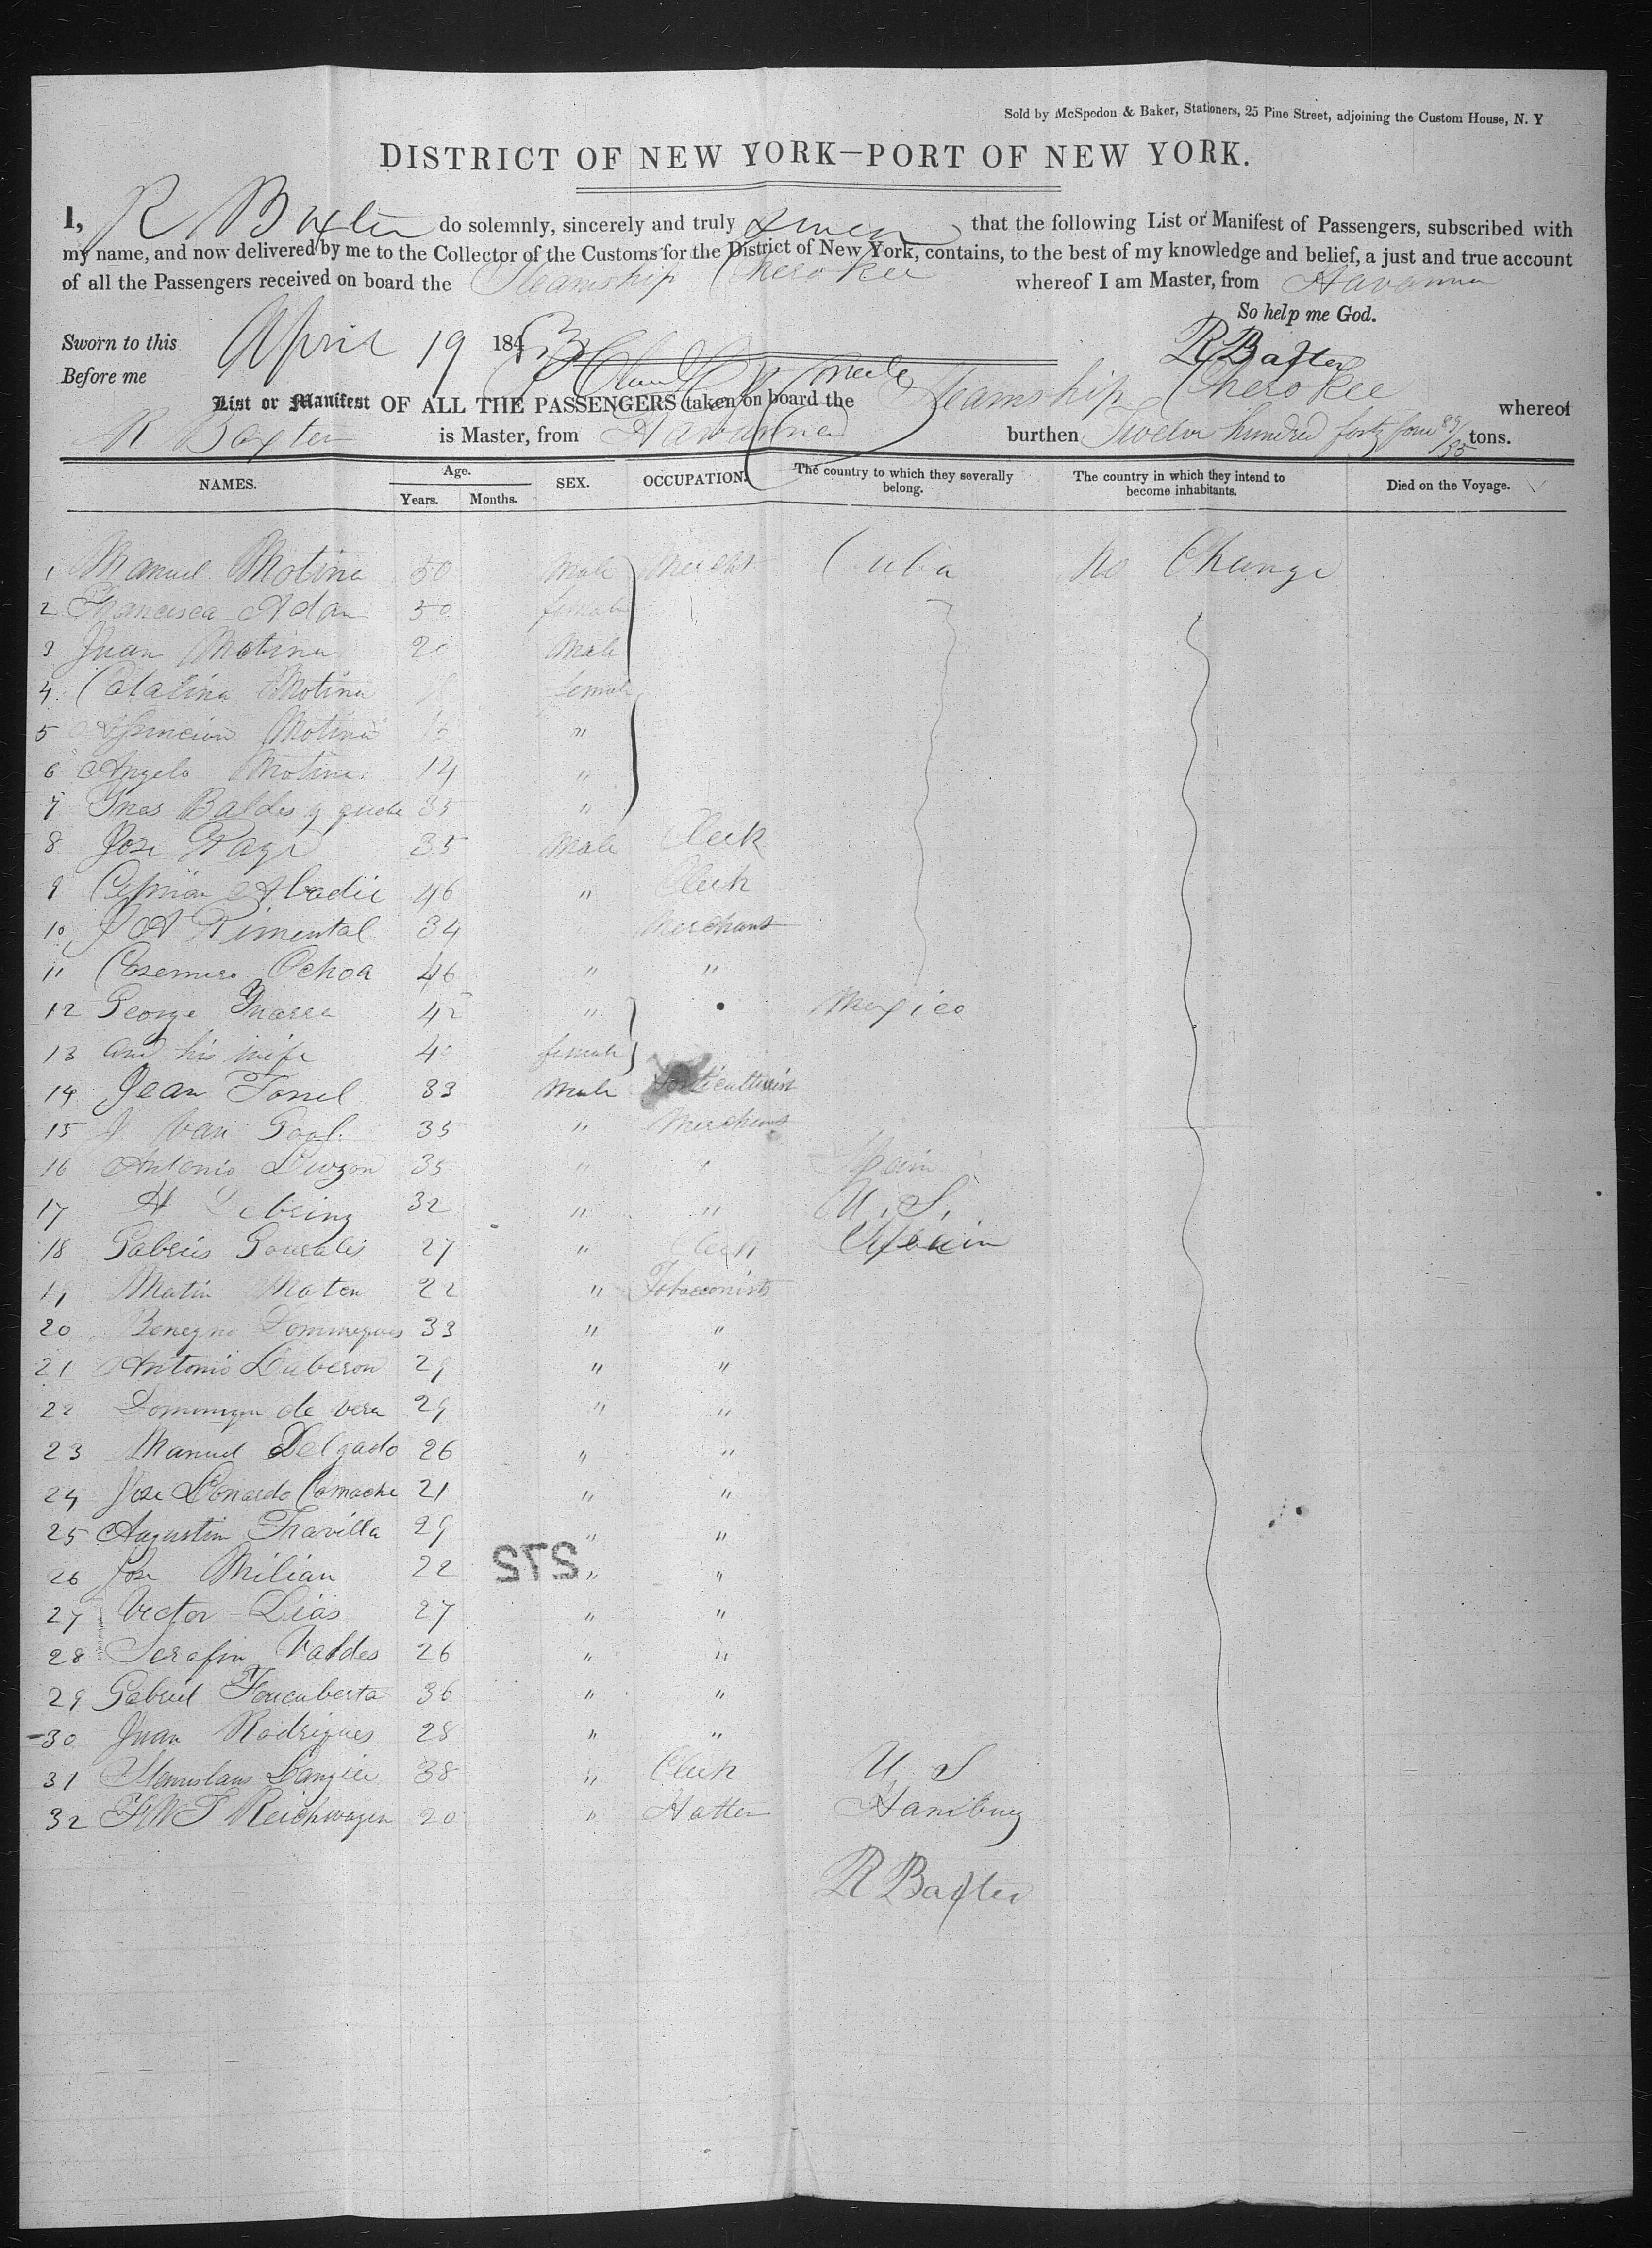 Sold by McSpedon & Baker, Stationers, 25 Pine Street, adjoining the Custom House, N. Y
DISTRICT OF NEW YORK—PORT OF NEW YORK.
I, R Baxter do solemnly, sincerely and truly swear that the following List or Manifest of Passengers, subscribed with
my name, and now delivered by me to the Collector of the Customs for the District of New York, contains, to the best of my knowledge and belief, a just and true account
of all the Passengers received on board the Steamship Cherokee whereof I am Master, from Havanna
So help me God.
Sworn to this April 19 184 R Baxter
Before me
List or Manifest OF ALL THE PASSENGERS taken on board the Steamship Cherokee whereof
R Baxter is Master, from Havanna burthen Twelve hundred forty four 89/95 tons.
NAMES. Age. Years. Months. SEX. OCCUPATION. The country to which they severally belong. The country in which they intend to become inhabitants. Died on the Voyage.
1 Manuel Motina 50 Male Mercht Cuba No Change
2 Francisca Adan 50 female
3 Juan Motina 20 Male
4 Catalina Motina 18 female
5 Motina "
6 Angela Motina 14 "
7 Ynes Baldes y 35 "
8 Jose 35 Male Clerk
9 Abadie 46 " Clerk
10 J A Pimental 34 " Merchant
11 Casemiro Ochoa 46 " "
12 George 42 " Mexico
13 and his wife 40 female
14 Jean Tonel 33 Male Horticulturist
15 J Van 35 " Merchant
16 Antonio 35 " " Spain
17 H 32 " " U. S.
18 Gabriel Gonzales 27 " Clerk Spain
19 Matin Maten 22 " Tobacconists
20 Benegno Dominguez 33 " "
21 Antonio Luberon 29 " "
22 de vera 29 " "
23 Manuel Delgado 26 " "
24 Jose Leonardo Camacho 21 " "
25 Augustin Travilla 29 " "
26 Jose Milian 22 " "
27 Victor Dias 27 " "
28 Serafin Valdes 26 " "
29 Gabriel Foncuberta 36 " "
30 Juan Rodrigues 28 " "
31 Stanislaus 38 " Clerk U. S
32 Reichwagen 20 " Hatter Hamburg
272
R Baxter